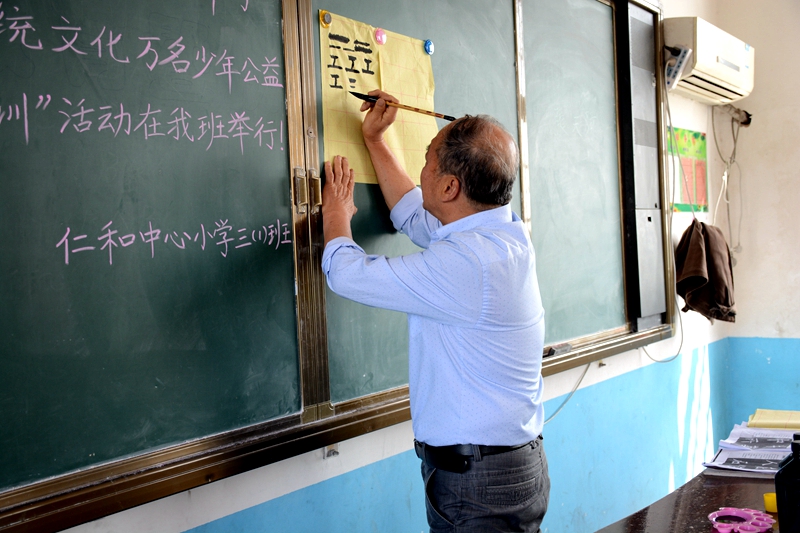 统文化万名少年公益
训”活动在我班举行!
仁和中心小学三(1)班
二三
工工工
工三